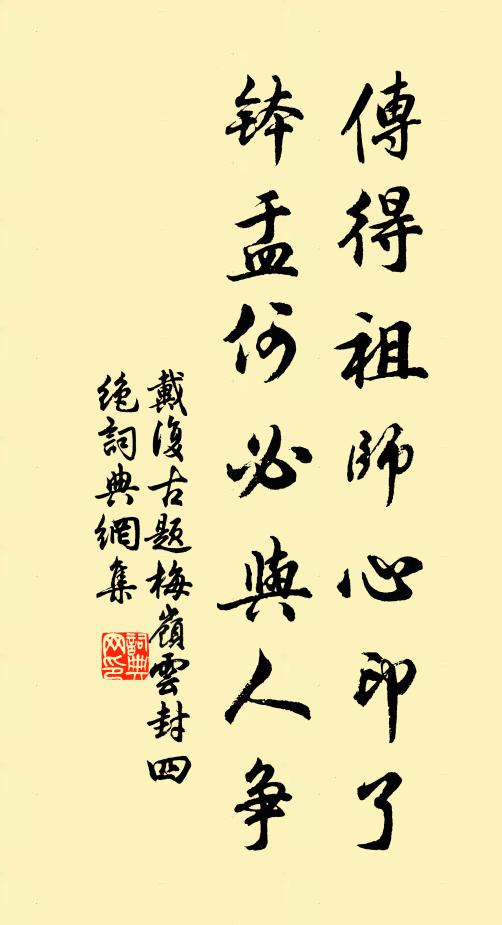 傳得祖師心印了
鉢盂何必與人争
戴復古題梅嶺雲封四
絶詞典網集
詞典
网印